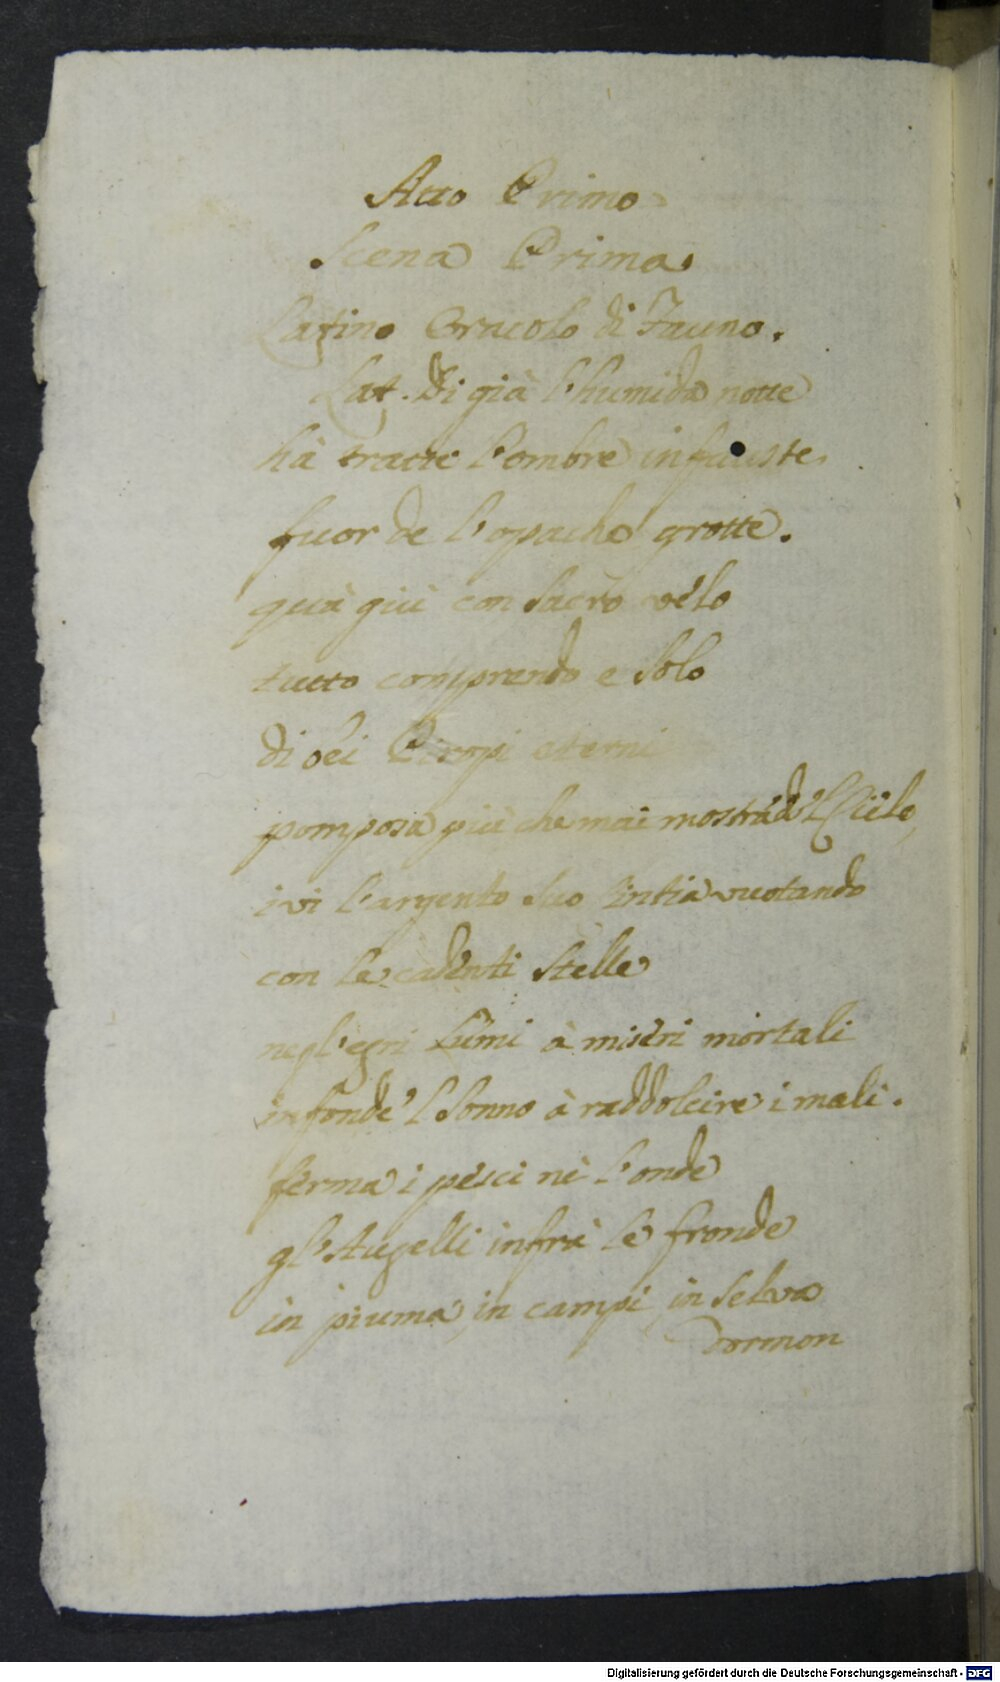 Atto Primo
Scena Prima.
Latino Oracolo di Fauno.
Lat. Di già l'humida notte
hà tratte l'ombre infauste
fuor de l'opache grotte.
quà giù con sacro velo
tutto comprendo e solo
di sei Piropi eterni
pomposa più che mai mostra d'l Cielo,
ivi l'argento suo Cintia vuotando
con le cadenti stelle
negl'egri lumi à miseri mortali
infonde 'l sonno à raddolcire i mali.
ferma i pesci ne l'onde
gl'Augelli infrà le fronde
in piuma, in campi, in selva
dormon
Digitalisierung gefördert durch die Deutsche Forschungsgemeinschaft - DFG